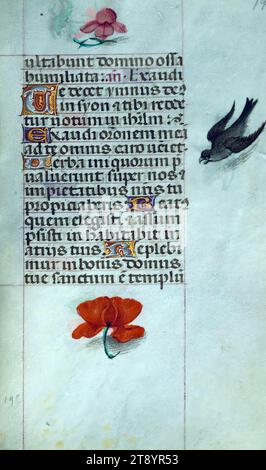 ultabunt domino ossa
humiliata: an̄. Exaudi
Te decet ymnus de
in syon et tibi redde
tur uotum in ihrlm:
Exaudi orōnem meaʒ
ad te omnis caro ueniet
Uerba iniquorum p
ualuerunt super nos et
impietatibus nr̄is tu
propiciaberis Beat
quem elegisti et assum
psisti inhabitabit in
atriis tuis Reple bi
mur in bonis domus
tue sanctum ē templū
195
alamy
Image ID: 2T8YR53
www.alamy.com